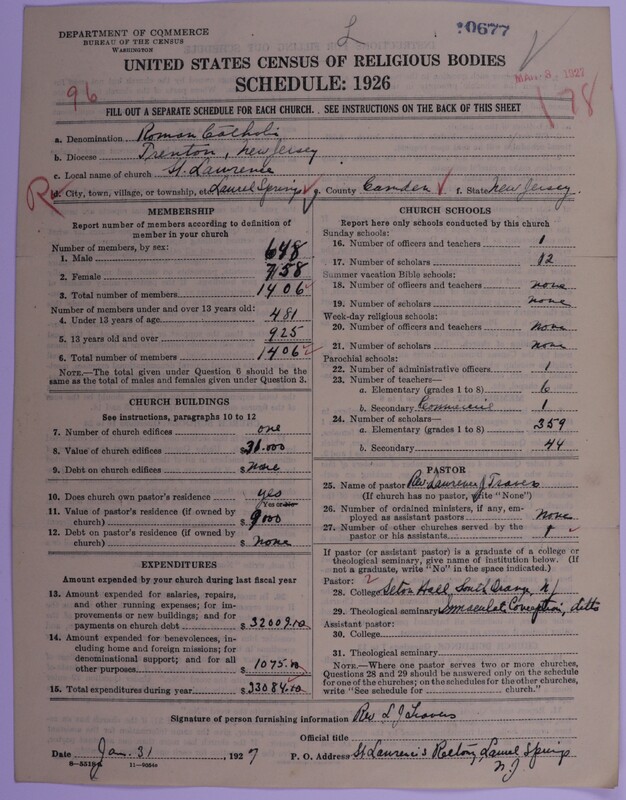 DEPARTMENT OF COMMERCE
BUREAU OF THE CENSUS
WASHINGTON
L
20677
UNITED STATES CENSUS OF RELIGIOUS BODIES
SCHEDULE: 1926
96
MAR 3 1927
178
FILL OUT A SEPARATE SCHEDULE FOR EACH CHURCH. SEE INSTRUCTIONS ON THE BACK OF THIS SHEET
a. Denomination Roman Catholic
b. Diocese Trenton, New Jersey
c. Local name of church St. Lawrence
R
d. City, town, village, or township, etc. Laurel Springs e. County Camden f. State New Jersey.
MEMBERSHIP
Report number of members according to definition of
member in your church
Number of members, by sex:
1. Male 648
2. Female 758
3. Total number of members 1406
Number of members under and over 13 years old:
4. Under 13 years of age 481
5. 13 years old and over 925
6. Total number of members 1406
NOTE.—The total given under Question 6 should be
same as the total of males and females given under Question 3.
CHURCH BUILDINGS
See instructions, paragraphs 10 to 12
7. Number of church edifices one
8. Value of church edifices $ 31.000
9. Debt on church edifices $ none
10. Does church own pastor's residence yes
Yes or no
11. Value of pastor's residence (if owned by
church) $ 9000
12. Debt on pastor's residence (if owned by
church) $ none
EXPENDITURES
Amount expended by your church during last fiscal year
13. Amount expended for salaries, repairs,
and other running expenses; for im-
provements or new buildings; and for
payments on church debt $ 32009.10
14. Amount expended for benevolences, in-
cluding home and foreign missions; for
denominational support; and for all
other purposes $ 1075.00
15. Total expenditures during year $ 33084.10
CHURCH SCHOOLS
Report here only schools conducted by this church
Sunday schools:
16. Number of officers and teachers 1
17. Number of scholars 12
Summer vacation Bible schools:
18. Number of officers and teachers none
19. Number of scholars none
Week-day religious schools:
20. Number of officers and teachers none
21. Number of scholars none
Parochial schools:
22. Number of administrative officers 1
23. Number of teachers—
a. Elementary (grades 1 to 8) 6
b. Secondary Commercial 1
24. Number of scholars—
a. Elementary (grades 1 to 8) 359
b. Secondary 44
PASTOR
25. Name of pastor Rev Lawrence J Travers
(If church has no pastor, write "None")
26. Number of ordained ministers, if any, em-
ployed as assistant pastors none
27. Number of other churches served by the
pastor or his assistants 1
If pastor (or assistant pastor) is a graduate of a college or
theological seminary, give name of institution below. (If
not a graduate, write "No" in the space indicated.)
Pastor: 2
28. College Seton Hall, South Orange, NJ
29. Theological seminary Immaculate Conception, ditto
Assistant pastor:
30. College
31. Theological seminary
NOTE.—Where one pastor serves two or more churches,
Questions 28 and 29 should be answered only on the schedule
for one of the churches; on the schedules for the other churches,
write "See schedule for church."
Signature of person furnishing information Rev L J Travers
Official title
Date Jan. 31, 1927 P. O. Address St Lawrence's Rectory, Laurel Springs
N J
11—9354a